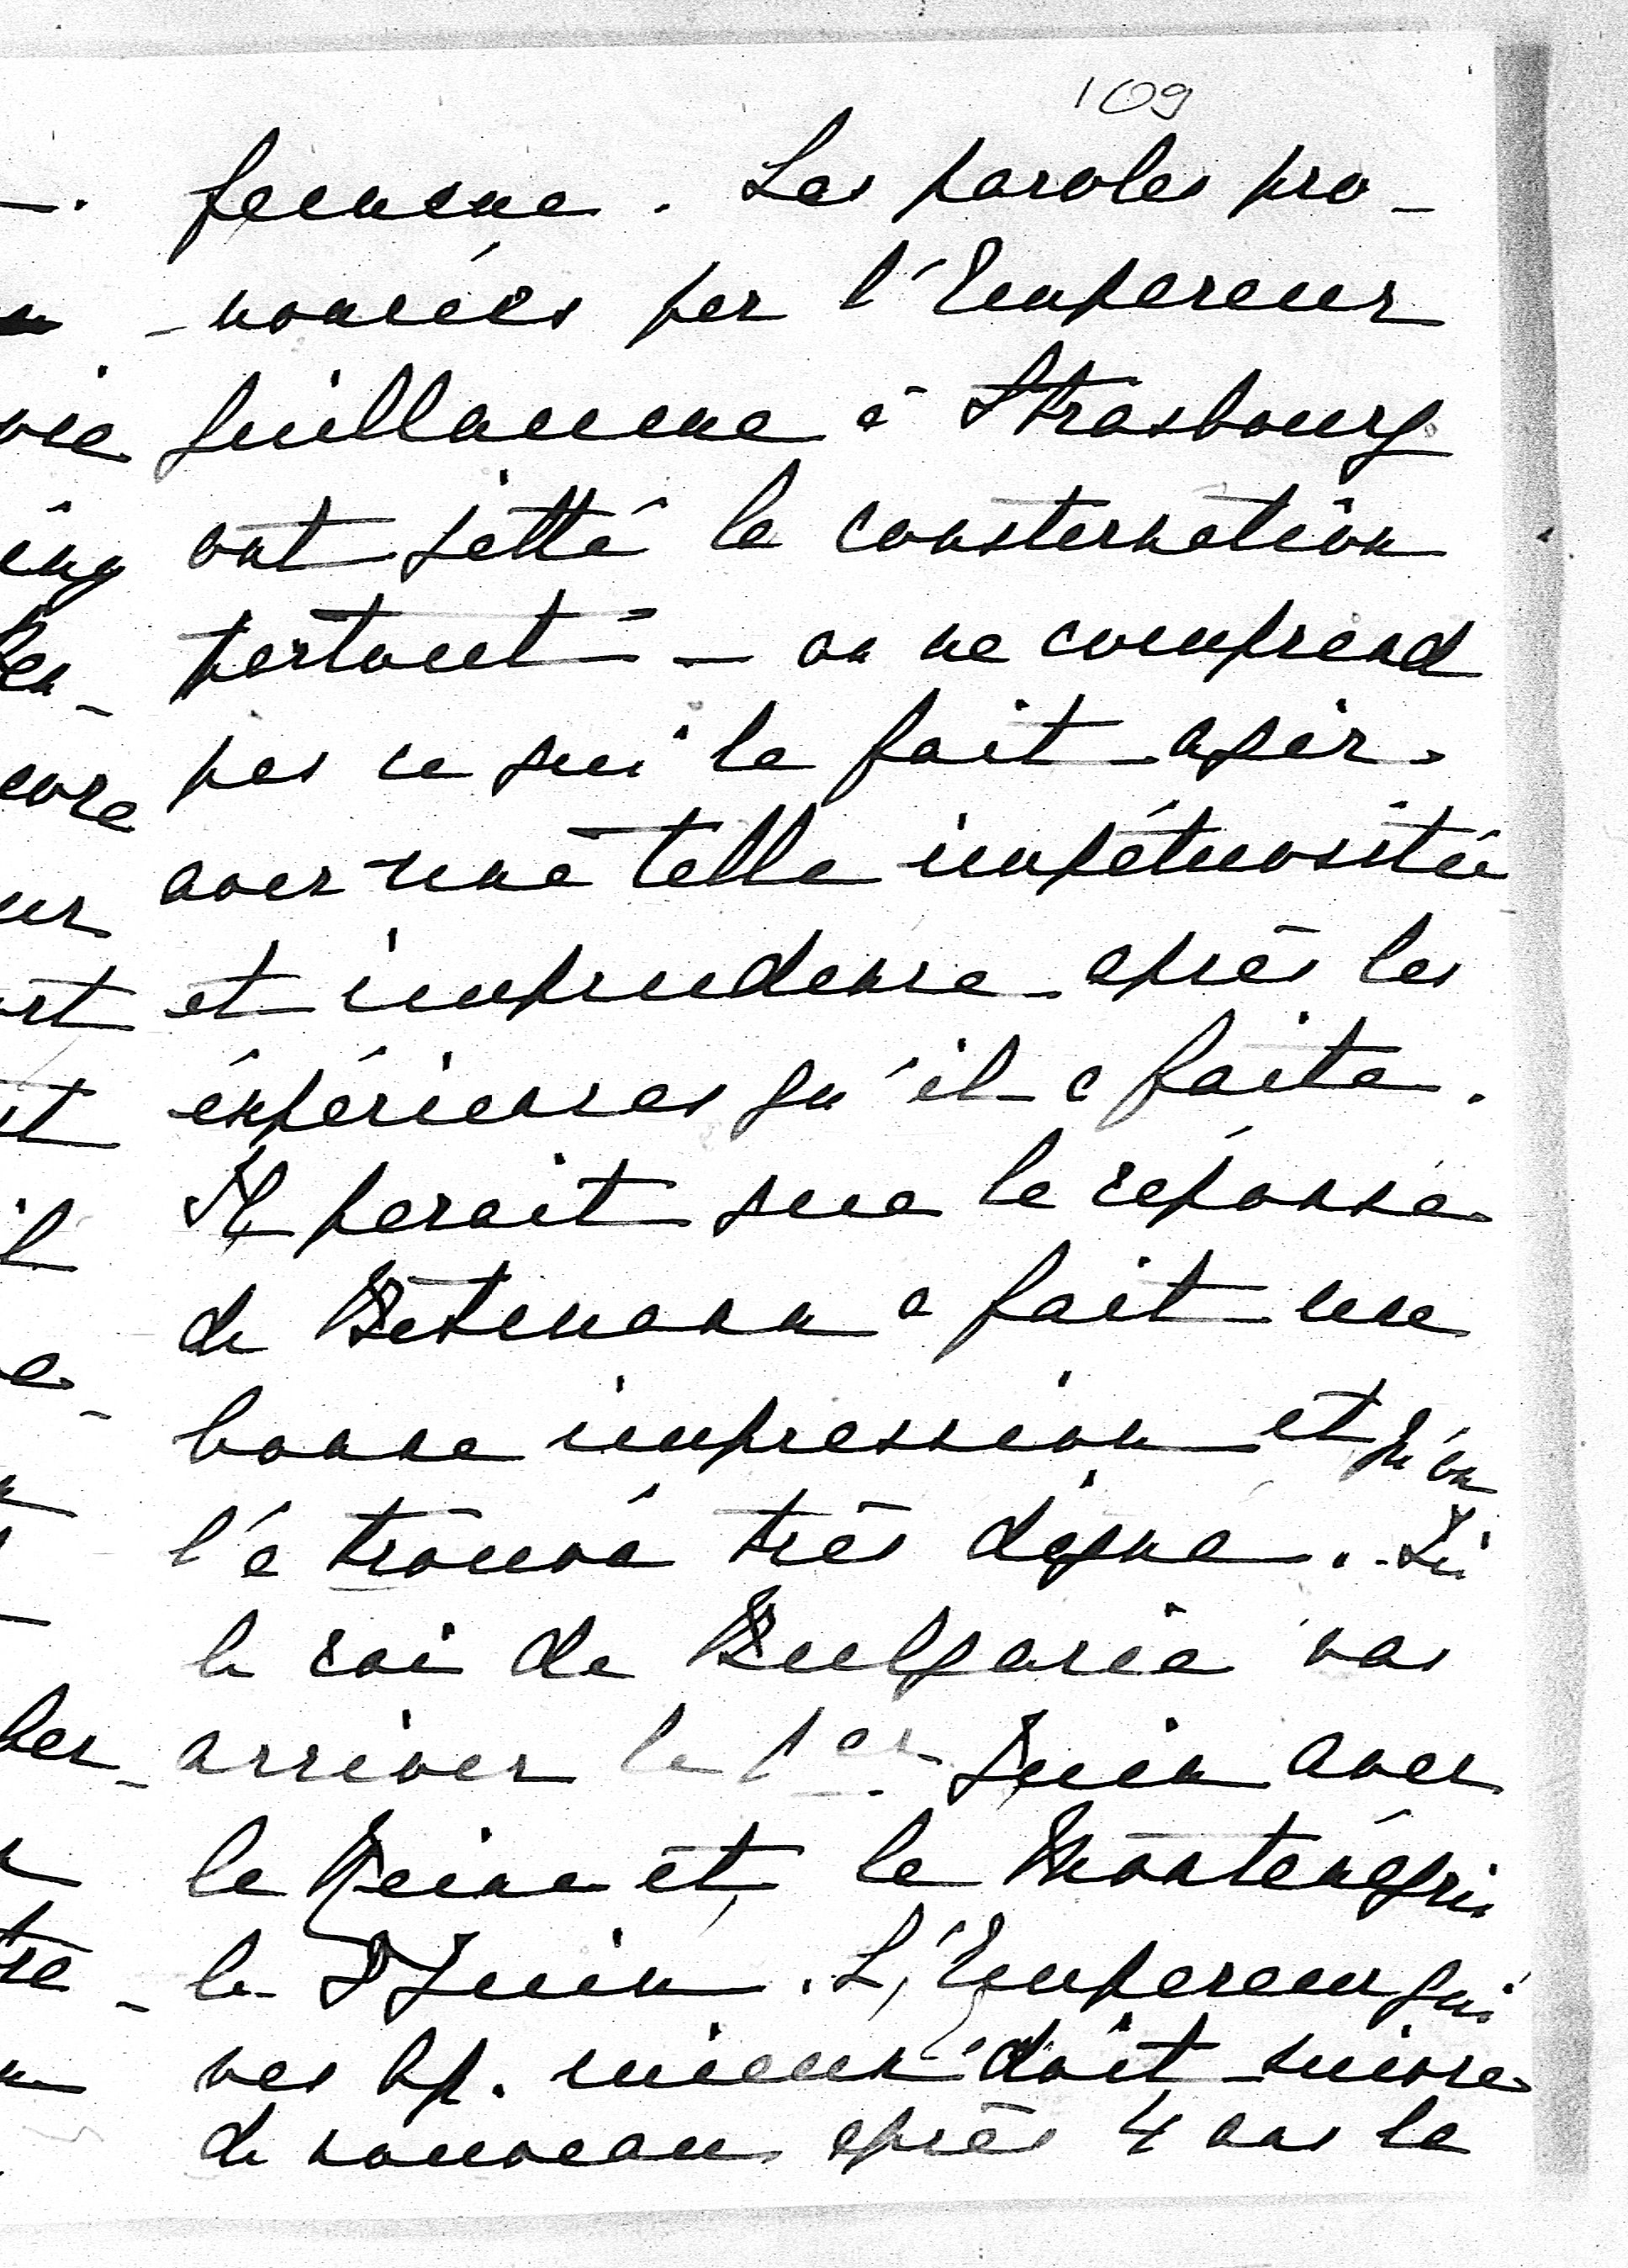 109
femme. Les paroles pro-
-noncées par l'Empereur
Guillaume à Strasbourg
ont jetté la consternation
partout – on ne comprend
pas ce qui le fait agir
avec une telle impétuosité
et imprudence après les
éxpériences qu'il a faite.
Il parait que la réponse
de Betmann a fait une
bonne impression et qu'on
l'a trouvé très digne. Ici
le roi de Bulgarie vas
arriver le 1er Juin avec
la Reine et le Monténégrin
le 8 Juin. L'Empereur qui
vas bp. mieux doit suivre
de nouveau après 4 ans la